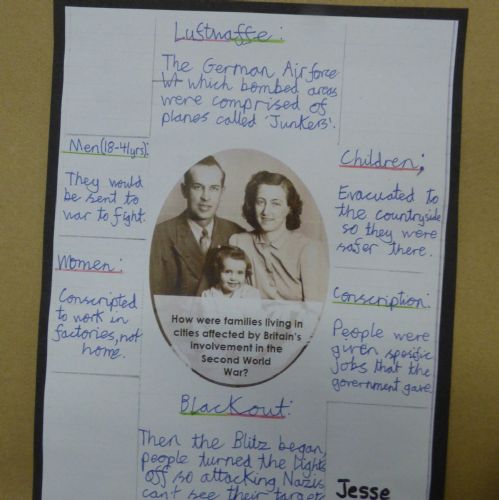 Luftwaffe:
The German Air force
which bombed areas
were comprised of
planes called 'Junkers'.
Men (18-41yrs):
They would
be sent to
war to fight.
Children:
Evacuated to
the countryside
so they were
safer there.
Women:
Conscripted
to work in
factories, not
home.
How were families living in
cities affected by Britain's
involvement in the
Second World
War?
Conscription:
People were
given specific
jobs that the
government gave
Blackout:
Then the Blitz began,
people turned the lights
off so attacking Nazis
can't see their target
Jesse